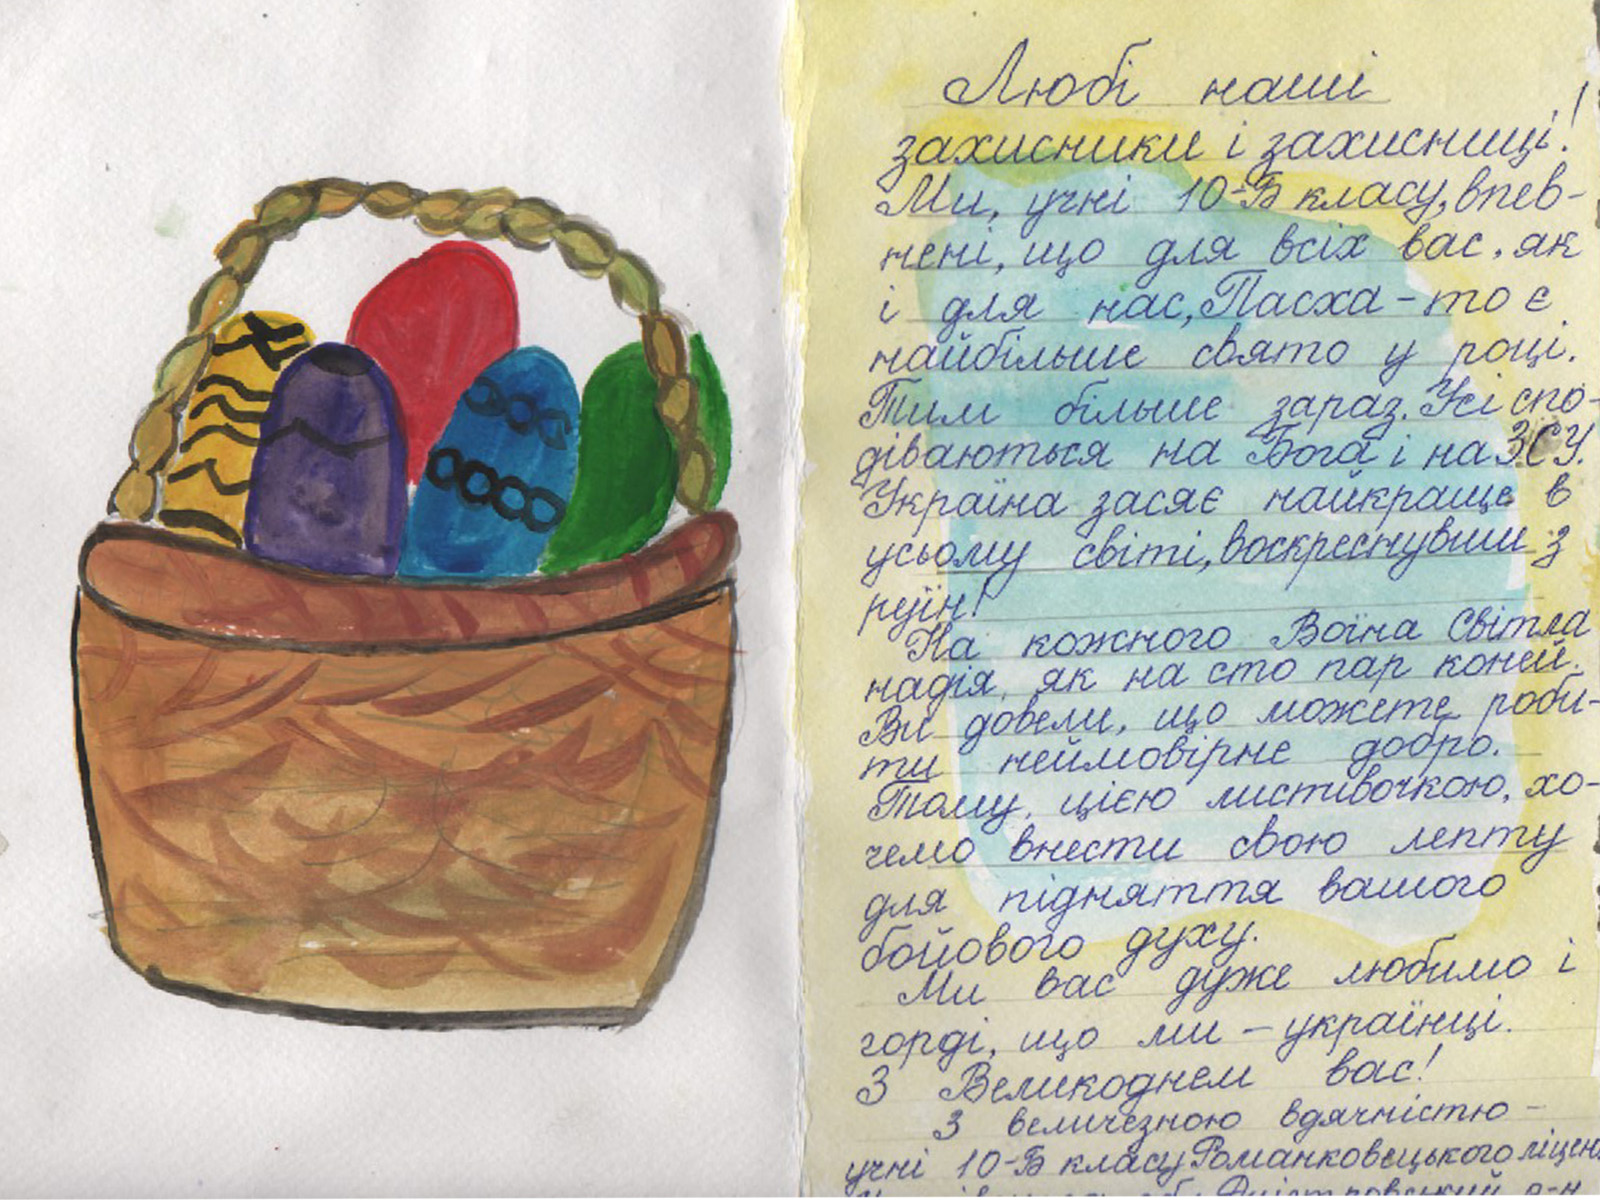 Любі наші
захисники і захисниці!
Ми, учні 10-Б класу, впев-
нені, що для всіх вас, як
і для нас, Пасха - то є
найбільше свято у році.
Тим більше зараз. Усі спо-
діваються на Бога і на ЗСУ.
Україна засяє найкраще в
усьому світі, воскреснувши з
руїн!
На кожного Воїна Світла
надія, як на сто пар коней.
Ви довели, що можете роби-
ти неймовірне добро.
Тому, цією листівочкою, хо-
чемо внести свою лепту
для підняття вашого
бойового духу.
Ми вас дуже любимо і
горді, що ми - українці.
З Великоднем вас!
З величезною вдячністю -
учні 10-Б класу Романковецького ліцею
Дністровський р-н